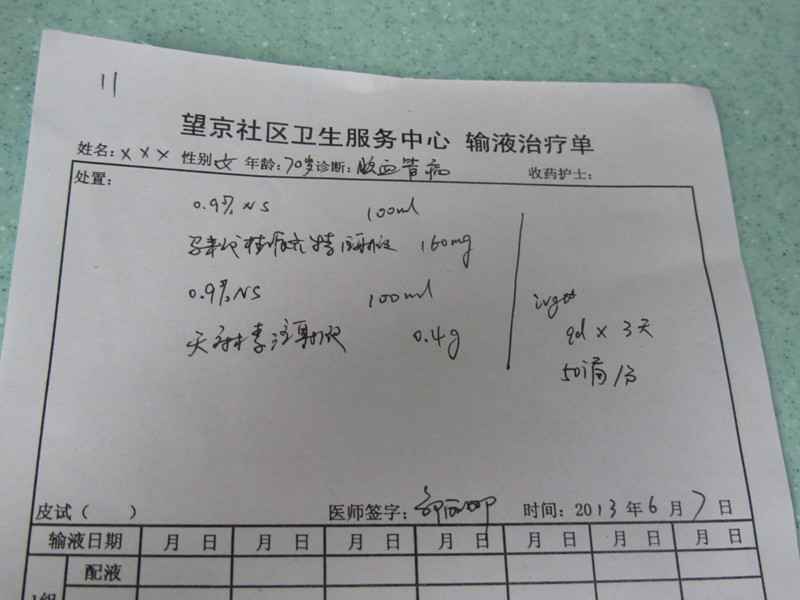 11
望京社区卫生服务中心 输液治疗单
姓名: XXX 性别 女 年龄: 70岁 诊断: 脑血管病 收药护士:
处置:
0.9% NS 100ml
马来酸桂哌齐特注射液 160mg
0.9% NS 100ml
天麻素注射液 0.4g
ivgtt
qd × 3天
50滴/分
皮试( ) 医师签字: 时间: 2013 年 6 月 7 日
输液日期 月 日 月 日 月 日 月 日 月 日 月 日 月 日
配液
1组